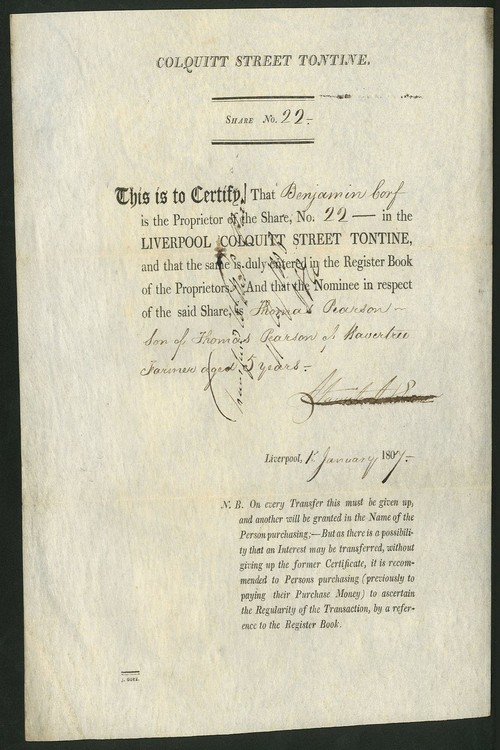 COLQUITT STREET TONTINE.
SHARE No. 22-
This is to Certify, That Benjamin Corf
is the Proprietor of the Share, No. 22 — in the
LIVERPOOL COLQUITT STREET TONTINE,
and that the same is duly entered in the Register Book
of the Proprietors. And that the Nominee in respect
of the said Share, is Thomas Pearson -
Son of Thomas Pearson of Wavertree
Farmer aged 5 years -
Liverpool, 1st January 1807-
N. B. On every Transfer this must be given up,
and another will be granted in the Name of the
Person purchasing;—But as there is a possibili-
ty that an Interest may be transferred, without
giving up the former Certificate, it is recom-
mended to Persons purchasing (previously to
paying their Purchase Money) to ascertain
the Regularity of the Transaction, by a refer-
ence to the Register Book.